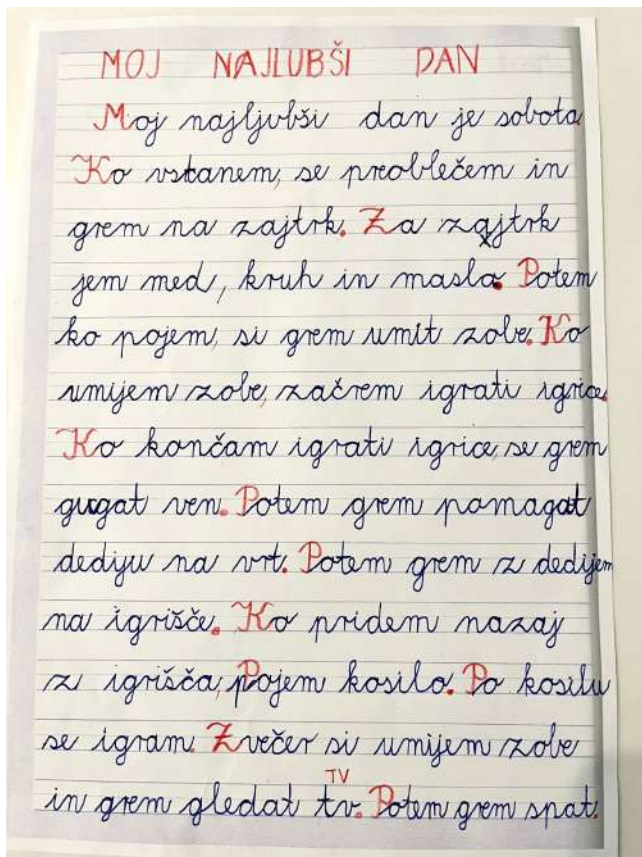 MOJ NAJLUBŠI DAN
Moj najljubši dan je sobota.
Ko vstanem, se preoblečem in
grem na zajtrk. Za zajtrk
jem med, kruh in maslo. Potem
ko pojem, si grem umit zobe. Ko
umijem zobe, začnem igrati igrice.
Ko končam igrati igrice, se grem
gugat ven. Potem grem pomagat
dediju na vrt. Potem grem z dedijem
na igrišče. Ko pridem nazaj
z igrišča, Pojem kosilo. Po kosilu
se igram. Zvečer si umijem zobe
TV
in grem gledat tv. Potem grem spat.